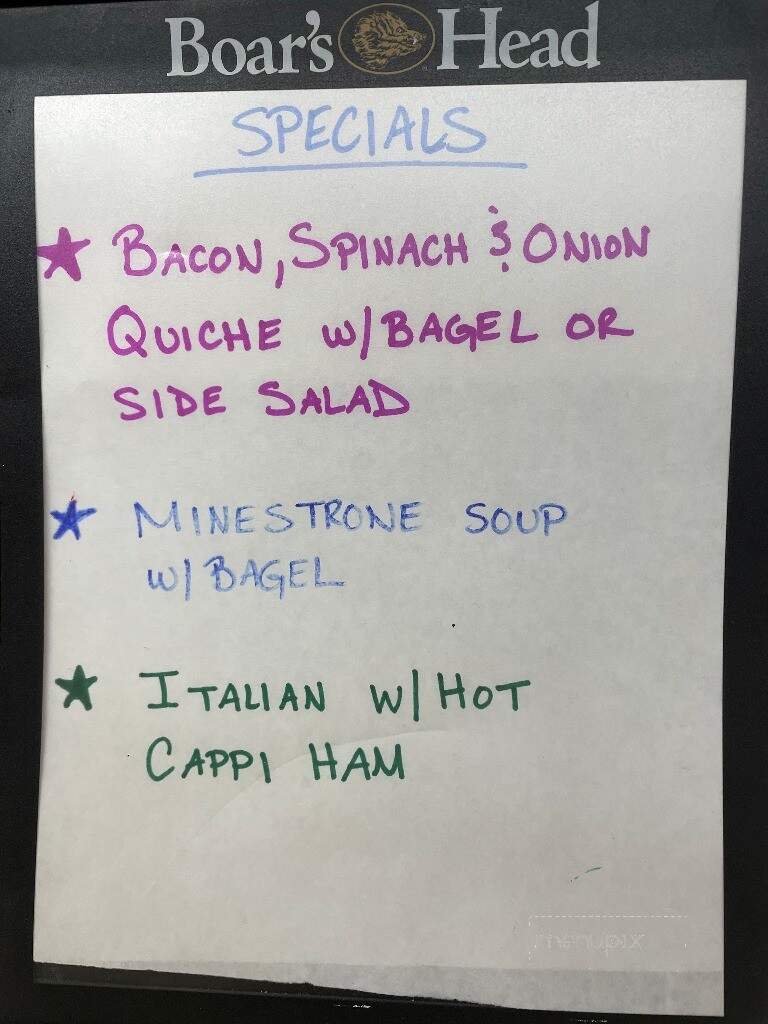 Boar's Head
SPECIALS
★ BACON, SPINACH & ONION
QUICHE W/BAGEL OR
SIDE SALAD
★ MINESTRONE SOUP
W/BAGEL
★ ITALIAN W/HOT
CAPPI HAM
menupix